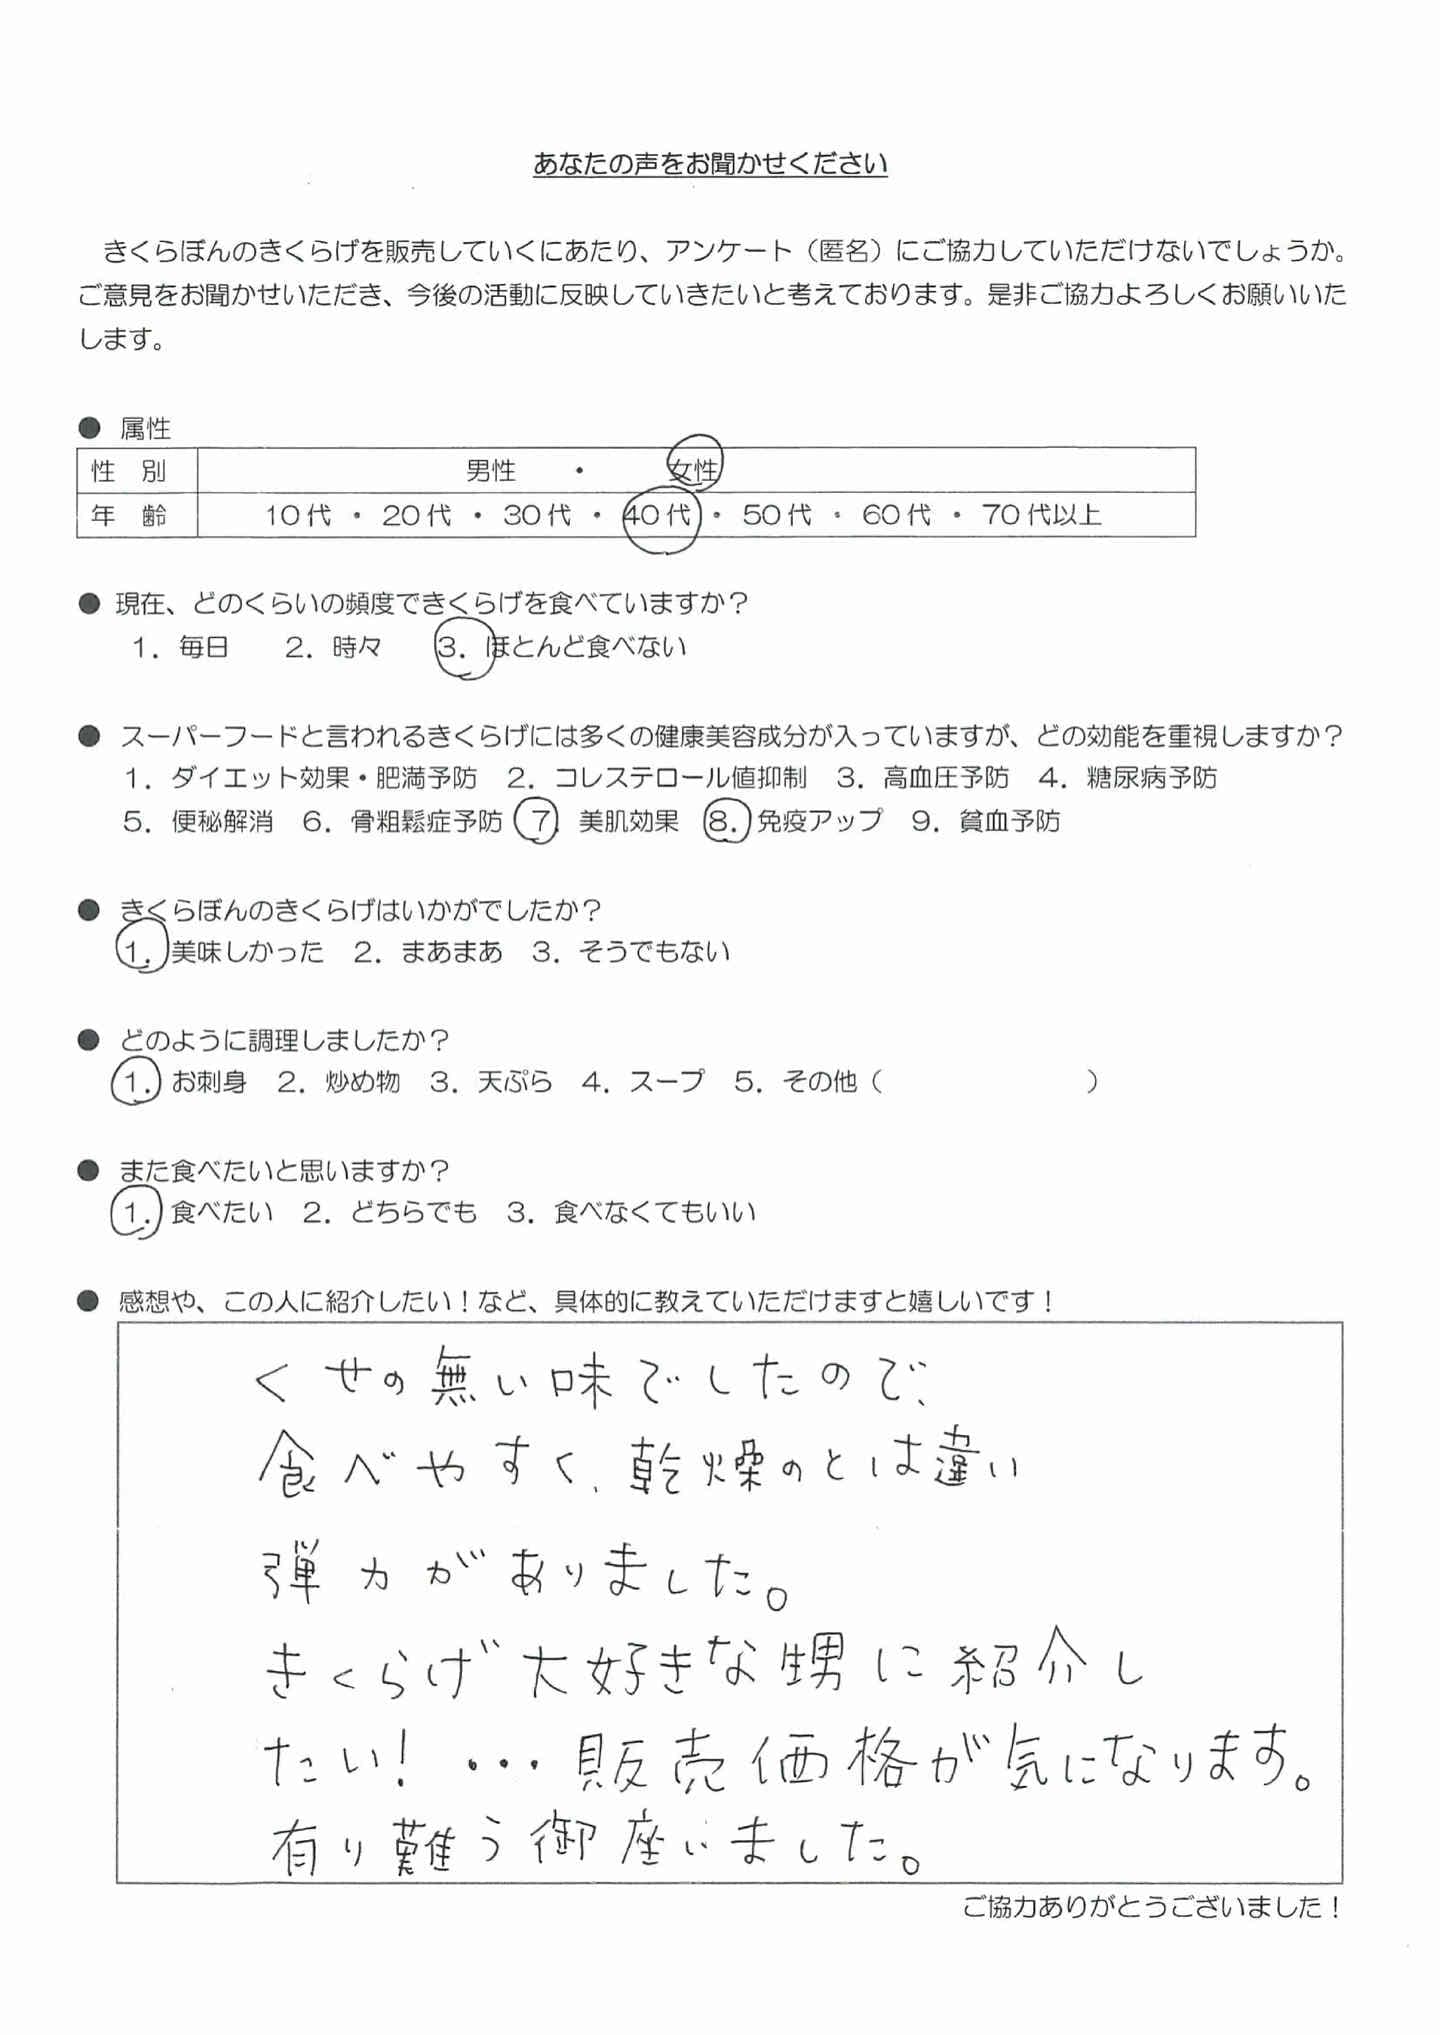 あなたの声をお聞かせください
きくらぼんのきくらげを販売していくにあたり、アンケート（匿名）にご協力していただけないでしょうか。
ご意見をお聞かせいただき、今後の活動に反映していきたいと考えております。是非ご協力よろしくお願いいた
します。
● 属性
性　別　男性　・　女性
年　齢　10代 ・ 20代 ・ 30代 ・ 40代 ・ 50代 ・ 60代 ・ 70代以上
● 現在、どのくらいの頻度できくらげを食べていますか？
1．毎日　2．時々　3．ほとんど食べない
● スーパーフードと言われるきくらげには多くの健康美容成分が入っていますが、どの効能を重視しますか？
1．ダイエット効果・肥満予防　2．コレステロール値抑制　3．高血圧予防　4．糖尿病予防
5．便秘解消　6．骨粗鬆症予防　7．美肌効果　8．免疫アップ　9．貧血予防
● きくらぼんのきくらげはいかがでしたか？
1．美味しかった　2．まあまあ　3．そうでもない
● どのように調理しましたか？
1．お刺身　2．炒め物　3．天ぷら　4．スープ　5．その他（　　　　　　　　）
● また食べたいと思いますか？
1．食べたい　2．どちらでも　3．食べなくてもいい
● 感想や、この人に紹介したい！など、具体的に教えていただけますと嬉しいです！
くせの無い味でしたので、
食べやすく、乾燥のとは違い
弾力がありました。
きくらげ大好きな甥に紹介し
たい！…販売価格が気になります。
有り難う御座いました。
ご協力ありがとうございました！